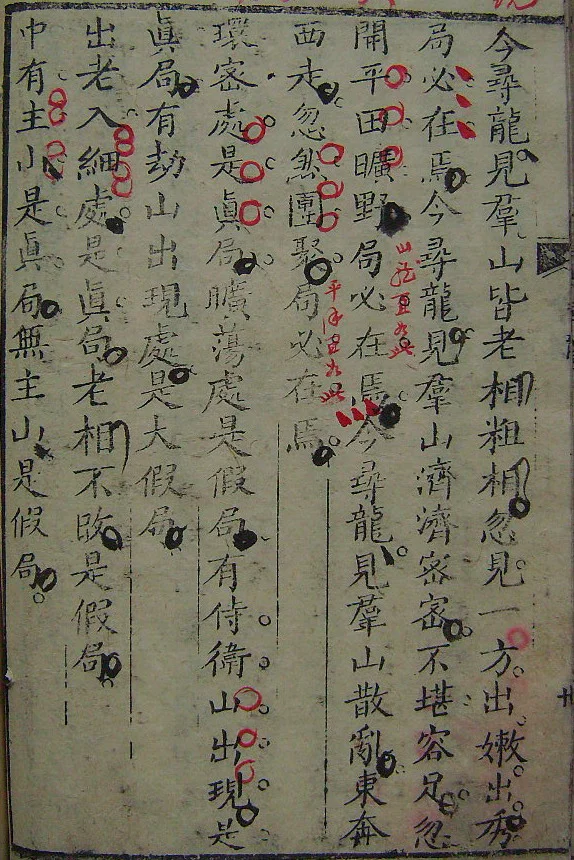 今尋龍見羣山皆老相粗相忽見一方出嫩出秀
局必在焉今尋龍見羣山濟濟密密不堪容足忽
開平田曠野局必在焉今尋龍見羣山散亂東奔
西走忽然團聚局必在焉
環密處是眞局曠蕩處是假局有侍衛山出現是
眞局有劫山出現處是大假局
出老入細處是眞局老相不改是假局
中有主山是眞局無主山是假局